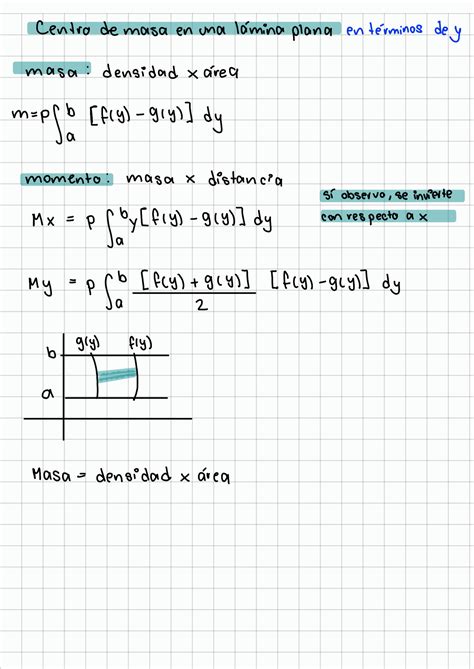 Centro de masa en una lámina plana en términos de y
masa: densidad x área
m=ρ∫ₐᵇ [f(y) - g(y)] dy
momento: masa x distancia
Sí observo, se invierte
con respecto a x
Mx = ρ ∫ₐᵇ y[f(y) - g(y)] dy
My = ρ ∫ₐᵇ [f(y) + g(y)]/2 [f(y) - g(y)] dy
g(y) f(y)
b
a
Masa = densidad x área